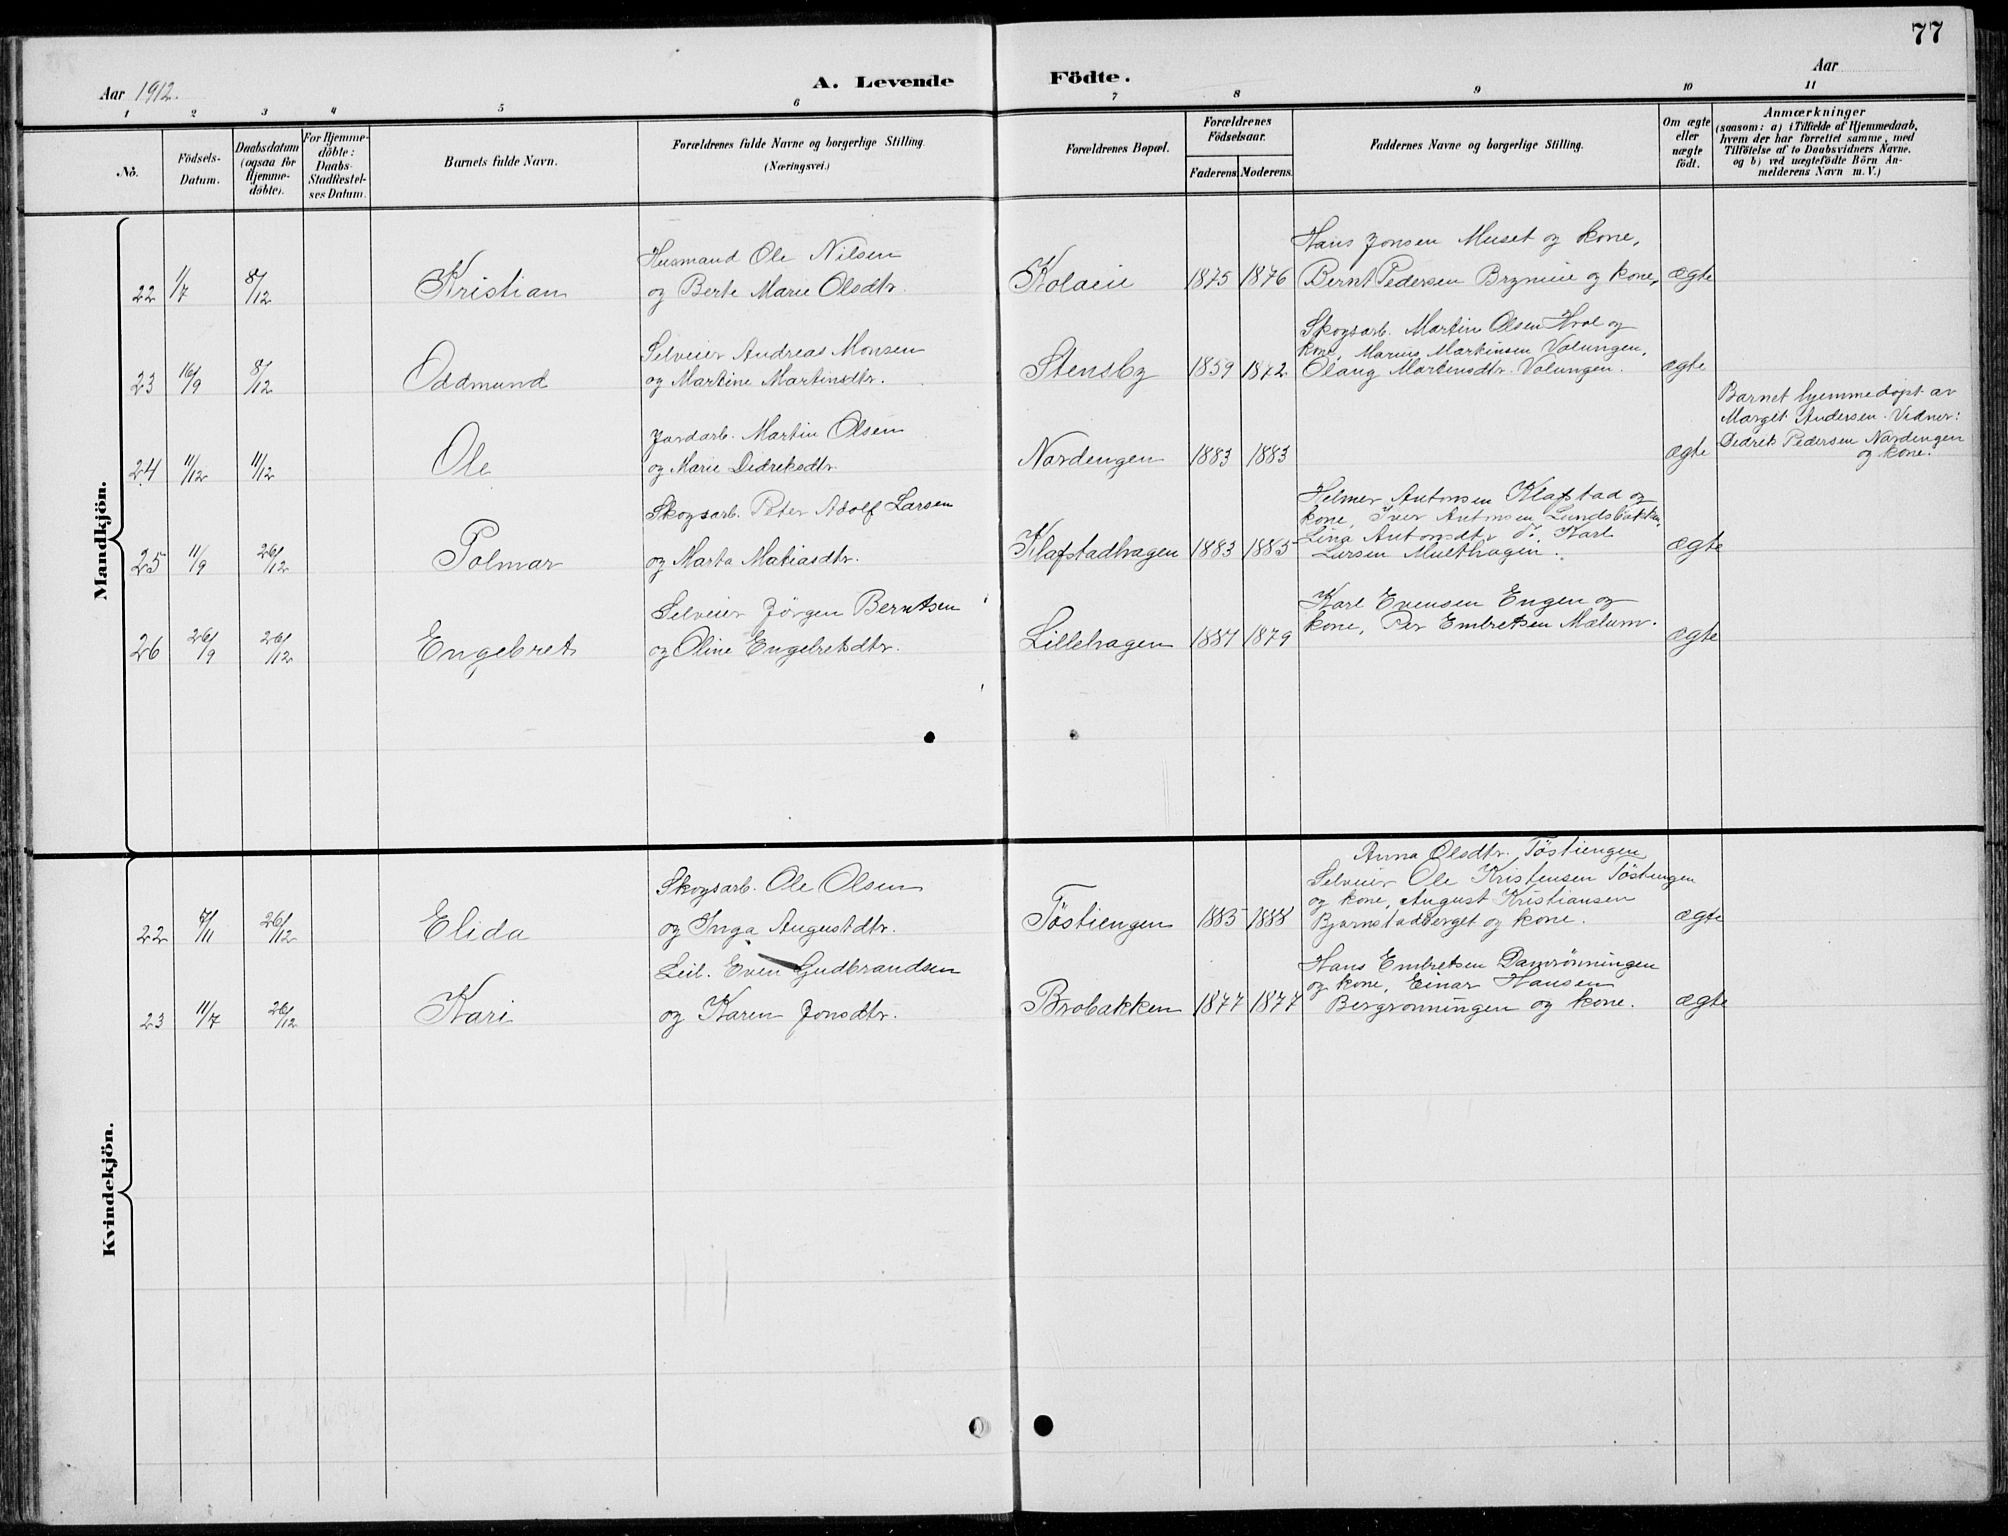 77
Aar 1912.
A. Levende Födte.
Aar
1 2 3 4 5 6 7 8 9 10 11
Nò.
Födsels-Datum.
Daabsdatum (ogsaa for Hjemme-döbte).
For Hjemme-döbte: Daabs Stadfæstel-ses Datum.
Barnets fulde Navn.
Forældrenes fulde Navne og borgerlige Stilling.
(Næringsvei.)
Forældrenes Bopæl.
Forældrenes Födselsaar.
Faderens. Moderens.
Faddernes Navne og borgerlige Stilling.
Om ægte eller uægte födt.
Anmærkninger
(saasom: a) i Tilfælde af Hjemmedaab,
hvem der har forrettet samme, med
Tilföielse af to Daabsvidners Navne.
og b) ved uægtefödte Börn An-
melderens Navn m. V.)
Mandkjön.
Husmand Ole Nilsen
Hans Jonsen Muset og kone,
22 1/7 8/12 Kristian og Berte Marie Olsdtr. Kolaeie 1875 1876 Bernt Pedersen Brynieie og kone, ægte
Selveier Andreas Monsen
Skogsarb. Martin Olsen Hval og
kone, Marius Martinsen Volungen,
23 16/9 8/12 Oddmund og Martine Martinsdtr. Stensby 1859 1872 Olaug Martinsdtr. Volungen. ægte
Jordarb. Martin Olsen
Barnet hjemmedøpt av
Marget Andersen. Vidner:
24 11/12 11/12 Ole og Marie Didreksdtr. Nordengen 1883 1883 ægte Didrek Pedersen Nordengen
og kone.
Skogsarb. Peter Adolf Larsen
Helmer Antonsen Klafstad og
kone, Iver Antonsen Lundsbakken,
Lina Antonsdtr. do. Karl
25 11/9 26/12 Polmar og Marta Matiasdtr. Klafstadhagen 1883 1885 Larsen Multhagen. ægte
Selveier Jörgen Berntsen
Karl Evensen Engen og
kone, Per Embretsen Mælum.
26 26/9 26/12 Engebret og Oline Engebretsdtr. Lillehagen 1887 1879 ægte
Kvindekjön.
Anna Olsdtr. Töstiengen
Skogsarb. Ole Olsen
Selveier Ole Kristensen Töstiengen
og kone, August Kristiansen
22 7/11 26/12 Elida og Inga Augustdtr. Töstiengen 1885 1888 Bjørnstadberget og kone. ægte
Leil. Even Gudbrandsen
Hans Embretsen Damrönningen
og kone, Einar Hansen
23 11/7 26/12 Kari og Karen Jonsdtr. Brobakken 1877 1877 Bergrønningen og kone. ægte